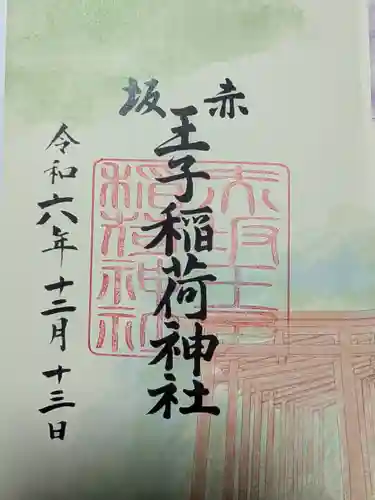 赤坂
王子稲荷神社
赤坂王子稲荷神社
令和六年十二月十三日